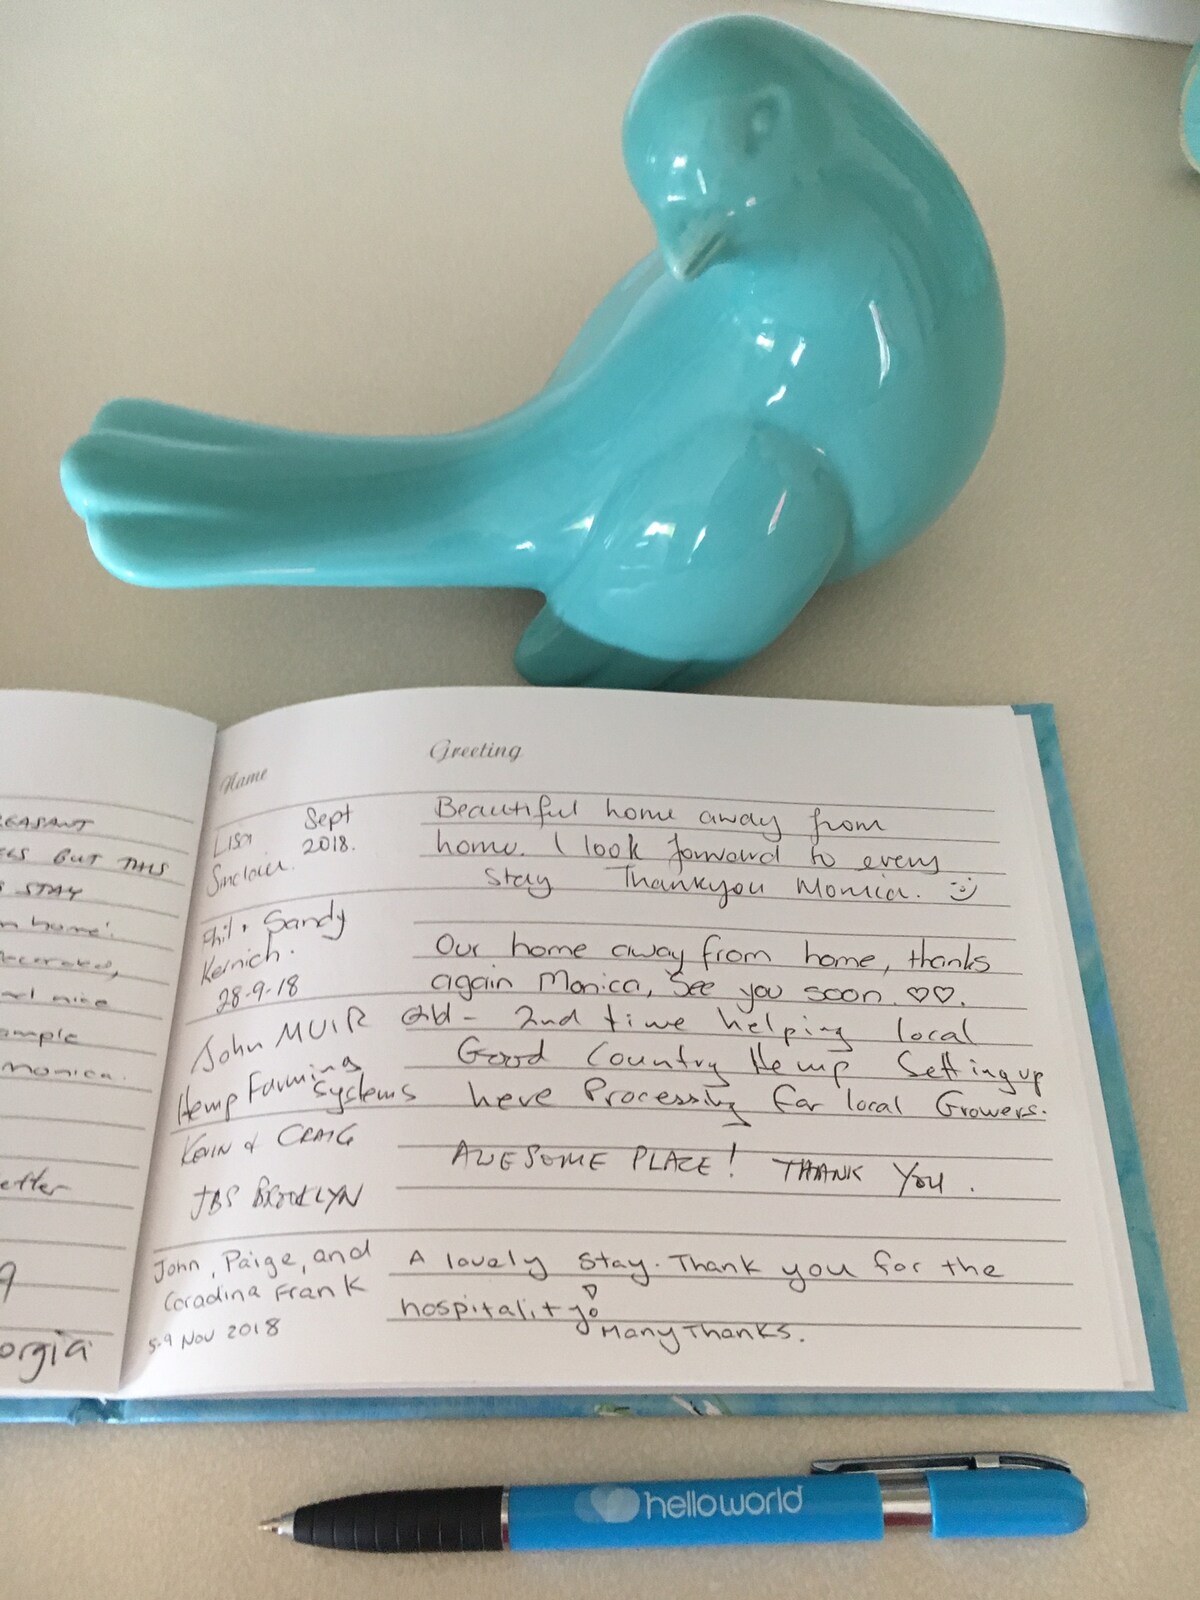 Name Greeting
Lisa Sept 2018.
Sinclair.
Beautiful home away from
home. I look forward to every
stay Thankyou Monica. :)
Phil + Sandy
Kernich.
28-9-18
Our home away from home, thanks
again Monica, See you soon ♡♡.
John MUIR
Hemp Farming
Systems
Qld - 2nd time helping local
Good Country Hemp Setting up
here Processing for local Growers.
KEVIN & CRAIG
JBS BROOKLYN
AWESOME PLACE! THANK YOU.
John, Paige, and
Coradina Frank
5-9 Nov 2018
A lovely stay. Thank you for the
hospitality
Many Thanks.
BUT THIS
STAY
home'.
nice
Monica.
helloworld